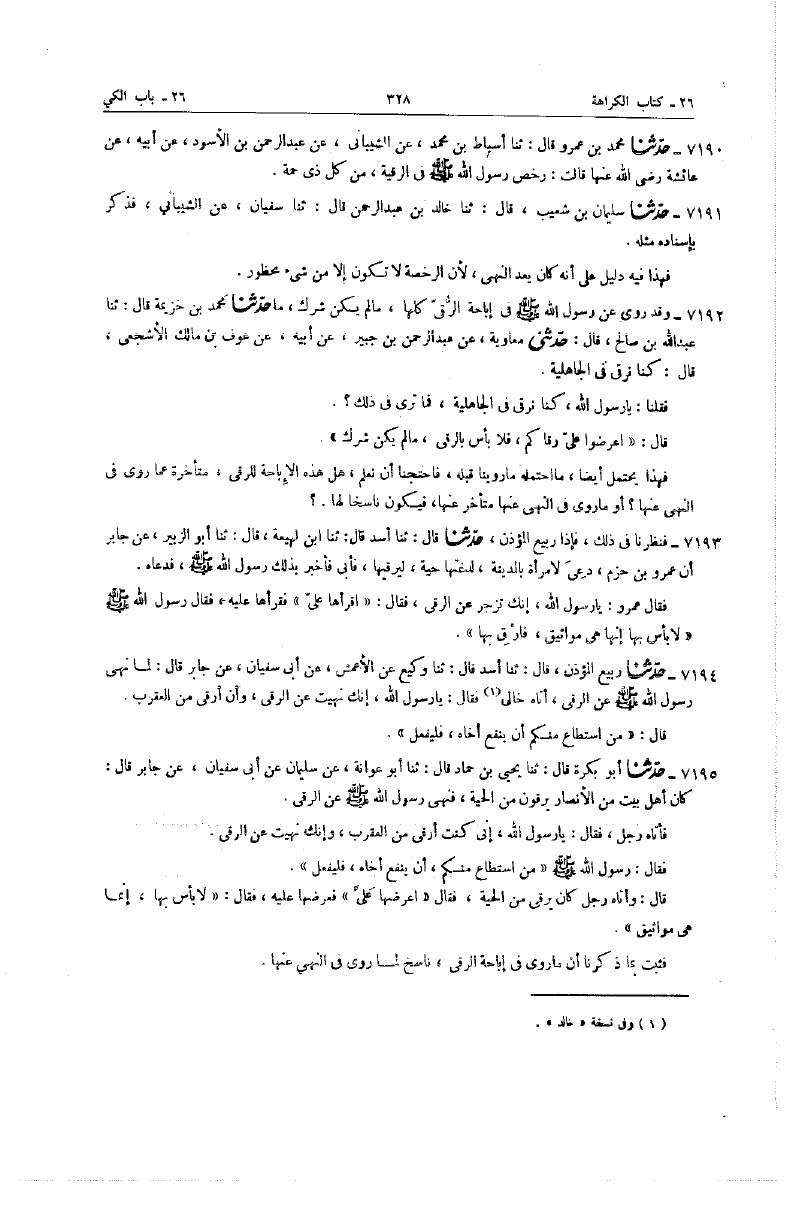 ٢٦ ـ كتاب الكراهة ٣٢٨ ٢٦ ـ باب الكي
٧١٩٠ ـ حدثنا محمد بن عمرو قال : ثنا أسباط بن محمد ، عن الشيبانى ، عن عبدالرحمن بن الأسود ، عن أبيه ، عن
عائشة رضى الله عنها قالت : رخص رسول الله ﷺ فى الرقية ، من كل ذى حمة .
٧١٩١ ـ حدثنا سليمان بن شعيب ، قال : ثنا خالد بن عبدالرحمن قال : ثنا سفيان ، عن الشيبانى ، فذكر
بإسناده مثله .
فهذا فيه دليل على أنه كان بعد النهى ، لأن الرخصة لا تكون إلا من شىء محظور .
٧١٩٢ ـ وقد روى عن رسول الله ﷺ فى إباحة الرُّقىٰ كلها ، مالم يكن شرك ، ماحدثنا محمد بن خزيمة قال : ثنا
عبدالله بن صالح ، قال : حدثنى معاوية ، عن عبدالرحمن بن جبير ، عن أبيه ، عن عوف بن مالك الأشجعى ،
قال : كنا نرقى فى الجاهلية .
فقلنا : يارسول الله ، كنا نرقى فى الجاهلية ، فما ترى فى ذلك ؟ .
قال : « اعرضوا علىّ رقاكم ، فلا بأس بالرقى ، مالم يكن شرك » .
فهذا يحتمل أيضا ، مااحتمله ماروينا قبله ، فاحتجنا أن نعلم ، هل هذه الإباحة للرقى ، متأخرة عما روى فى
النهى عنها ؟ أو ماروى فى النهى عنها متأخر عنها، فيكون ناسخا لها . ؟
٧١٩٣ ـ فنظرنا فى ذلك ، فإذا ربيع المؤذن ، حدثنا قال : ثنا أسد قال: ثنا ابن لهيعة ، قال : ثنا أبو الزبير ، عن جابر
أن عمرو بن حزم ، دعىَ لامرأة بالمدينة ، لدغتها حية ، ليرقيها ، فأبى فأخبر بذلك رسول الله ﷺ ، فدعاه .
فقال عمرو : يارسول الله ، إنك تزجر عن الرقى ، فقال : « اقرأها علىّ » فقرأها عليه ، فقال رسول الله ﷺ
« لابأس بها إنها هى مواثيق ، فارْقِ بها » .
٧١٩٤ ـ حدثنا ربيع المؤذن ، قال : ثنا أسد قال : ثنا وكيع عن الأعمش ، عن أبى سفيان ، عن جابر قال : لما نهى
رسول الله ﷺ عن الرقى ، أتاه خالى(١) فقال : يارسول الله ، إنك نهيت عن الرقى ، وأن أرقى من العقرب .
قال : « من استطاع منكم أن ينفع أخاه ، فليفعل » .
٧١٩٥ ـ حدثنا أبو بكرة قال : ثنا يحيى بن حماد قال : ثنا أبو عوانة ، عن سليمان عن أبى سفيان ، عن جابر قال :
كان أهل بيت من الأنصار يرقون من الحية ، فنهى رسول الله ﷺ عن الرقى .
فأتاه رجل ، فقال : يارسول الله ، إنى كنت أرقى من العقرب ، وإنك نهيت عن الرقى .
فقال : رسول الله ﷺ « من استطاع منكم ، أن ينفع أخاه ، فليفعل » .
قال : وأتاه رجل كان يرقى من الحية ، فقال « اعرضها عَلىَّ » فعرضها عليه ، فقال : « لابأس بها ، إنما
هى مواثيق » .
فثبت بما ذكرنا أن ماروى فى إباحة الرقى ، ناسخ لما روى فى النهى عنها .
( ١ ) وفى نسخة « خالد » .